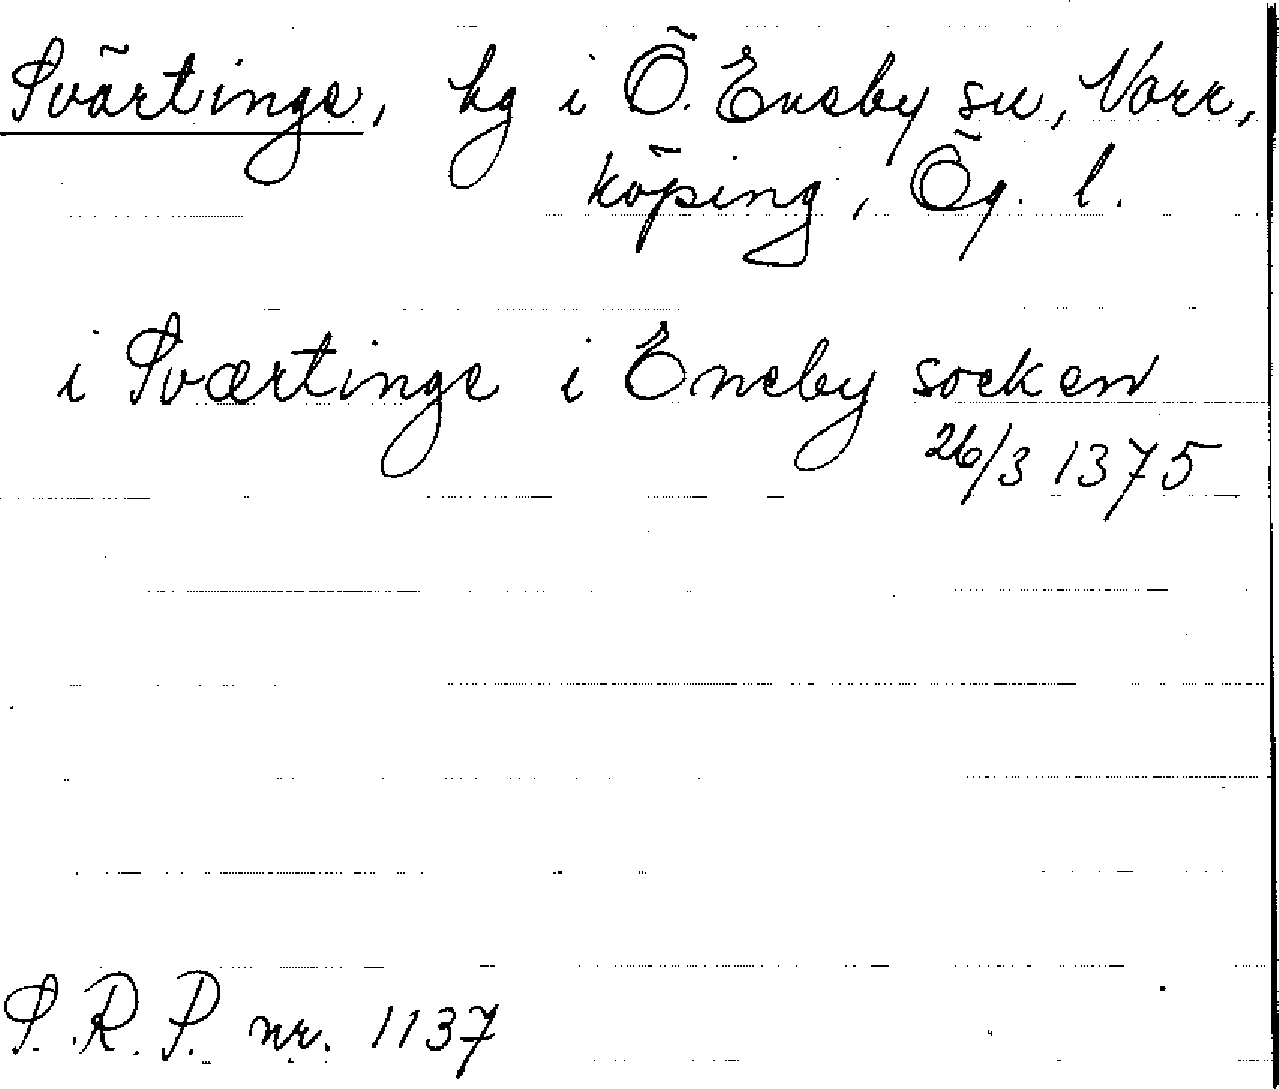 Svärtinge, hg i Ö. Eneby sn, Norr,
köping, Ög. l.
i Sværtinge i Eneby socken
26/3 1375
S. R. P. nr. 1137